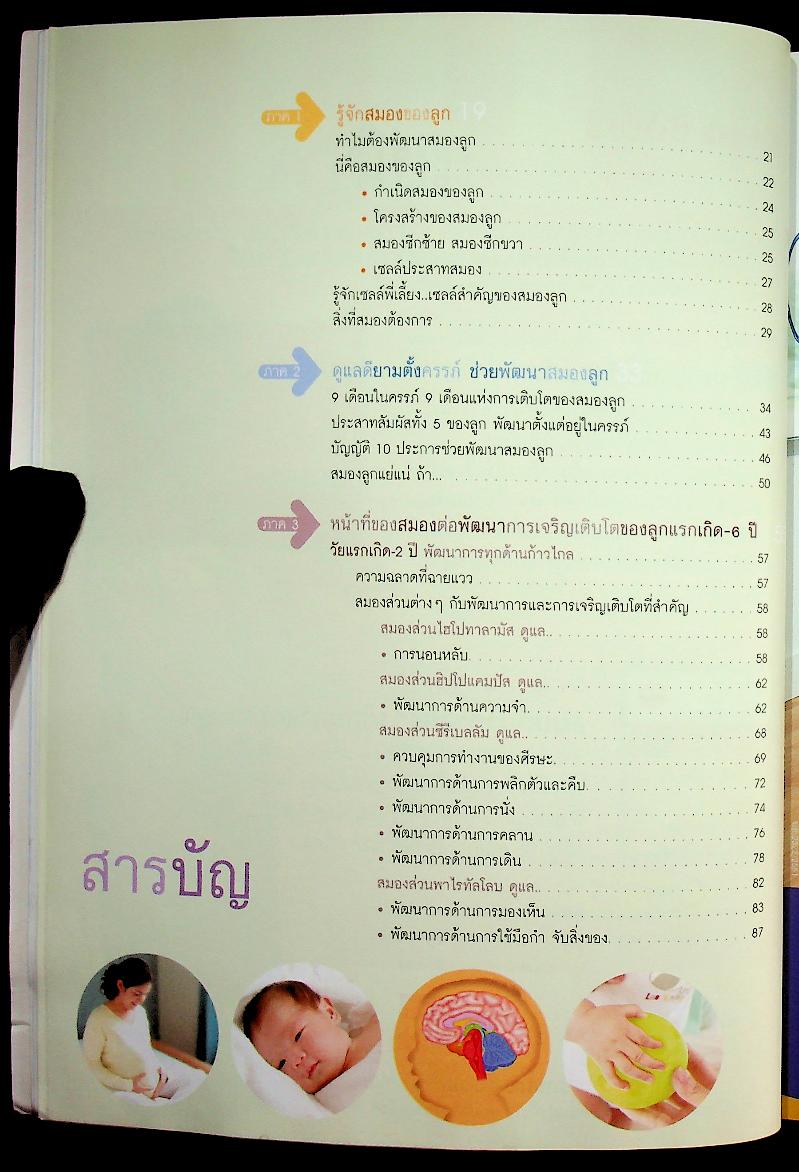 ภาค 1 รู้จักสมองของลูก 19
ทำไมต้องพัฒนาสมองลูก 21
นี่คือสมองของลูก 22
• กำเนิดสมองของลูก 24
• โครงสร้างของสมองลูก 25
• สมองซีกซ้าย สมองซีกขวา 25
• เซลล์ประสาทสมอง 27
รู้จักเซลล์พี่เลี้ยง..เซลล์สำคัญของสมองลูก 28
สิ่งที่สมองต้องการ 29
ภาค 2 ดูแลดียามตั้งครรภ์ ช่วยพัฒนาสมองลูก 33
9 เดือนในครรภ์ 9 เดือนแห่งการเติบโตของสมองลูก 34
ประสาทสัมผัสทั้ง 5 ของลูก พัฒนาตั้งแต่อยู่ในครรภ์ 43
บัญญัติ 10 ประการช่วยพัฒนาสมองลูก 46
สมองลูกแย่แน่ ถ้า... 50
ภาค 3 หน้าที่ของสมองต่อพัฒนาการเจริญเติบโตของลูกแรกเกิด-6 ปี
วัยแรกเกิด-2 ปี พัฒนาการทุกด้านก้าวไกล 57
ความฉลาดที่ฉายแวว 57
สมองส่วนต่างๆ กับพัฒนาการและการเจริญเติบโตที่สำคัญ 58
สมองส่วนไฮโปทาลามัส ดูแล.. 58
• การนอนหลับ 58
สมองส่วนฮิปโปแคมปัส ดูแล.. 62
• พัฒนาการด้านความจำ 62
สมองส่วนซีรีเบลลัม ดูแล.. 68
• ควบคุมการทำงานของศีรษะ 69
• พัฒนาการด้านการพลิกตัวและคืบ 72
• พัฒนาการด้านการนั่ง 74
• พัฒนาการด้านการคลาน 76
• พัฒนาการด้านการเดิน 78
สมองส่วนพาไรทัลโลบ ดูแล.. 82
• พัฒนาการด้านการมองเห็น 83
• พัฒนาการด้านการใช้มือกำ จับสิ่งของ 87
สารบัญ